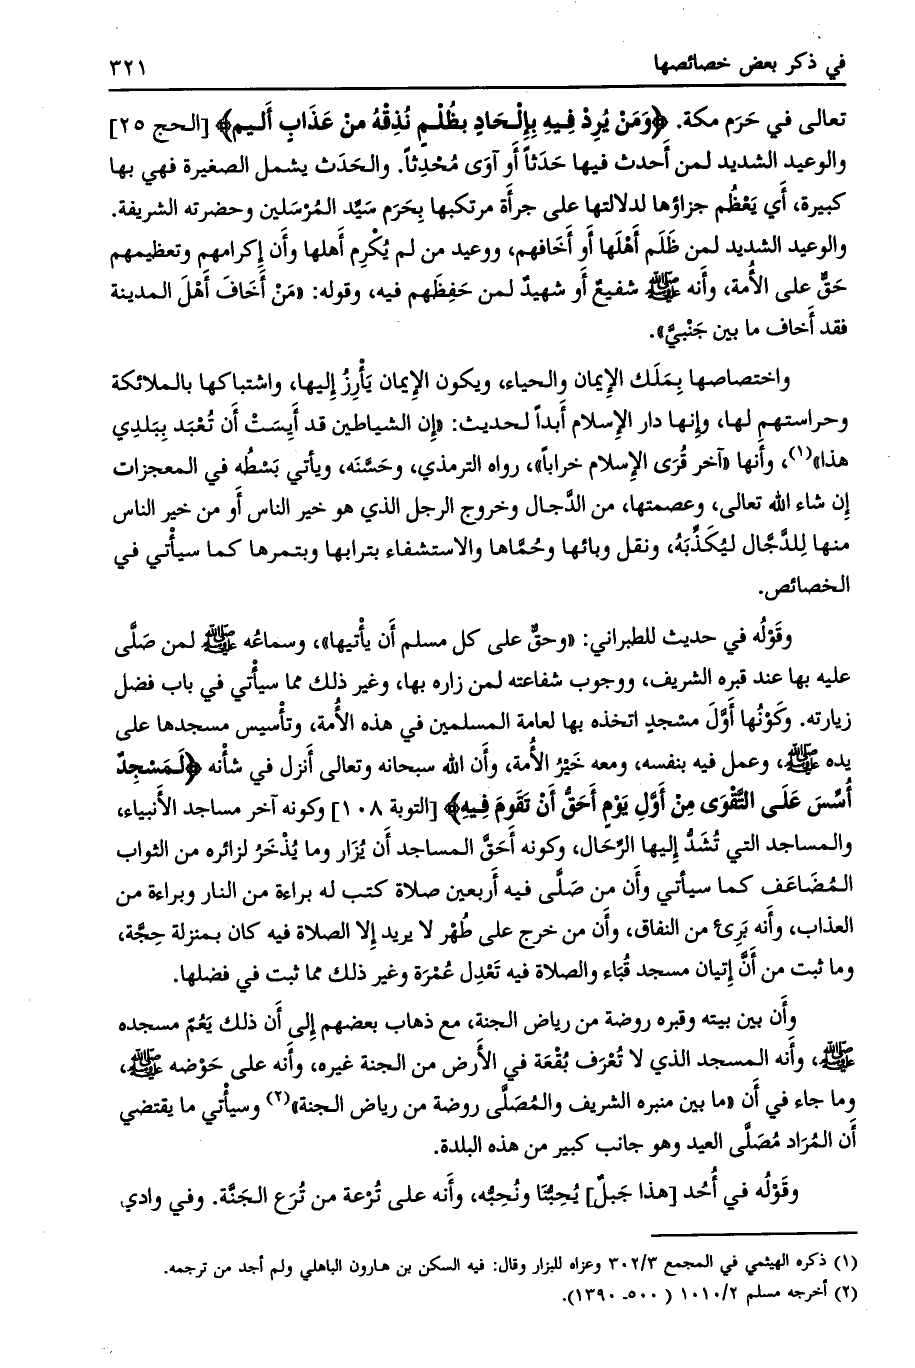 في ذكر بعض خصائصها ٣٢١
تعالى في حَرَم مكة. ﴿وَمَنْ يُرِدْ فِيهِ بِإِلْحَادٍ بظُلْمٍ نُذِقْهُ منْ عَذَابٍ أَليم﴾ [الحج ٢٥]
والوعيد الشديد لمن أَحدث فيها حَدَثاً أَو آوَى مُحْدِثاً. والحَدَث يشمل الصغيرة فهي بها
كبيرة، أَي يَعْظُم جزاؤها لدلالتها على جرأة مرتكبها بِحَرَم سَيِّد المُرْسَلين وحضرته الشريفة.
والوعيد الشديد لمن ظَلَم أَهْلَها أَو أَخَافهم، ووعيد من لم يُكْرِم أَهلها وأَن إكرامهم وتعظيمهم
حَقٌّ على الأُمة، وأَنه ﷺ شفيعٌ أَو شهيدٌ لمن حَفِظَهم فيه، وقوله: «مَنْ أَخَافَ أَهْلَ المدينة
فقد أَخاف ما بين جَنْبيَّ».
واختصاصها بِمَلَك الإِيمان والحياء، ويكون الإِيمان يَأْرِزُ إِليها، واشتباكها بالملائكة
وحراستهم لها، وإِنها دار الإِسلام أَبداً لحديث: «إِن الشياطين قد أَيِسَتْ أَن تُعْبَد بِبَلدِي
هذا»(١)، وأَنها «آخر قُرَى الإِسلام خراباً»، رواه الترمذي، وحَسَّنَه، ويأتي بَسْطُه في المعجزات
إِن شاء الله تعالى، وعصمتها، من الدَّجال وخروج الرجل الذي هو خير الناس أَو من خير الناس
منها لِلدَّجَّال ليُكَذِّبَهُ، ونقل وبائها وحُمَّاها والاستشفاء بترابها وبتمرها كما سيأْتي في
الخصائص.
وقَوْلُه في حديث للطبراني: «وحقٌّ على كل مسلم أَن يأْتيها»، وسماعُه ﷺ لمن صَلَّى
عليه بها عند قبره الشريف، ووجوب شفاعته لمن زاره بها، وغير ذلك مما سيأْتي في باب فضل
زيارته. وكَوْنُها أَوَّلَ مسْجدٍ اتخذه بها لعامة المسلمين في هذه الأُمة، وتأْسيس مسجدها على
يده ﷺ، وعمل فيه بنفسه، ومعه خَيْرُ الأُمة، وأَن الله سبحانه وتعالى أَنزل في شأْنه ﴿لَمَسْجِدٌ
أُسِّسَ عَلَى التَّقْوَى مِنْ أَوَّلِ يَوْمٍ أَحَقُّ أَنْ تَقُومَ فِيهِ﴾ [التوبة ١٠٨] وكونه آخر مساجد الأَنبياء،
والمساجد التي تُشَدُّ إِليها الرِّحَال، وكونه أَحَقَّ المساجد أَن يُزَار وما يُذْخَرُ لزائره من الثواب
المُضَاعَف كما سيأتي وأَن من صَلَّى فيه أَربعين صلاة كتب له براءة من النار وبراءة من
العذاب، وأَنه بَرِئ من النفاق، وأَن من خرج على طُهْر لا يريد إِلا الصلاة فيه كان بمنزلة حِجَّة،
وما ثبت من أَنَّ إِتيان مسجد قُبَاء والصلاة فيه تَعْدِل عُمْرَة وغير ذلك مما ثبت في فضلها.
وأَن بين بيته وقبره روضة من رياض الجنة، مع ذهاب بعضهم إِلى أَن ذلك يَعُمّ مسجده
ﷺ، وأَنه المسجد الذي لا تُعْرَف بُقْعَة في الأَرض من الجنة غيره، وأَنه على حَوْضه ﷺ،
وما جاء في أَن «ما بين منبره الشريف والمُصَلَّى روضة من رياض الجنة»(٢) وسيأْتي ما يقتضي
أَن المُرَاد مُصَلَّى العيد وهو جانب كبير من هذه البلدة.
وقَوْلُه في أُحُد [هذا جَبلٌ] يُحِبُّنَا ونُحِبُّه، وأَنه على تُرْعة من تُرَع الجَنَّة. وفي وادي
(١) ذكره الهيثمي في المجمع ٣٠٢/٣ وعزاه للبزار وقال: فيه السكن بن هارون الباهلي ولم أجد من ترجمه.
(٢) أخرجه مسلم ١٠١٠/٢ (٥٠٠ـ ١٣٩٠).